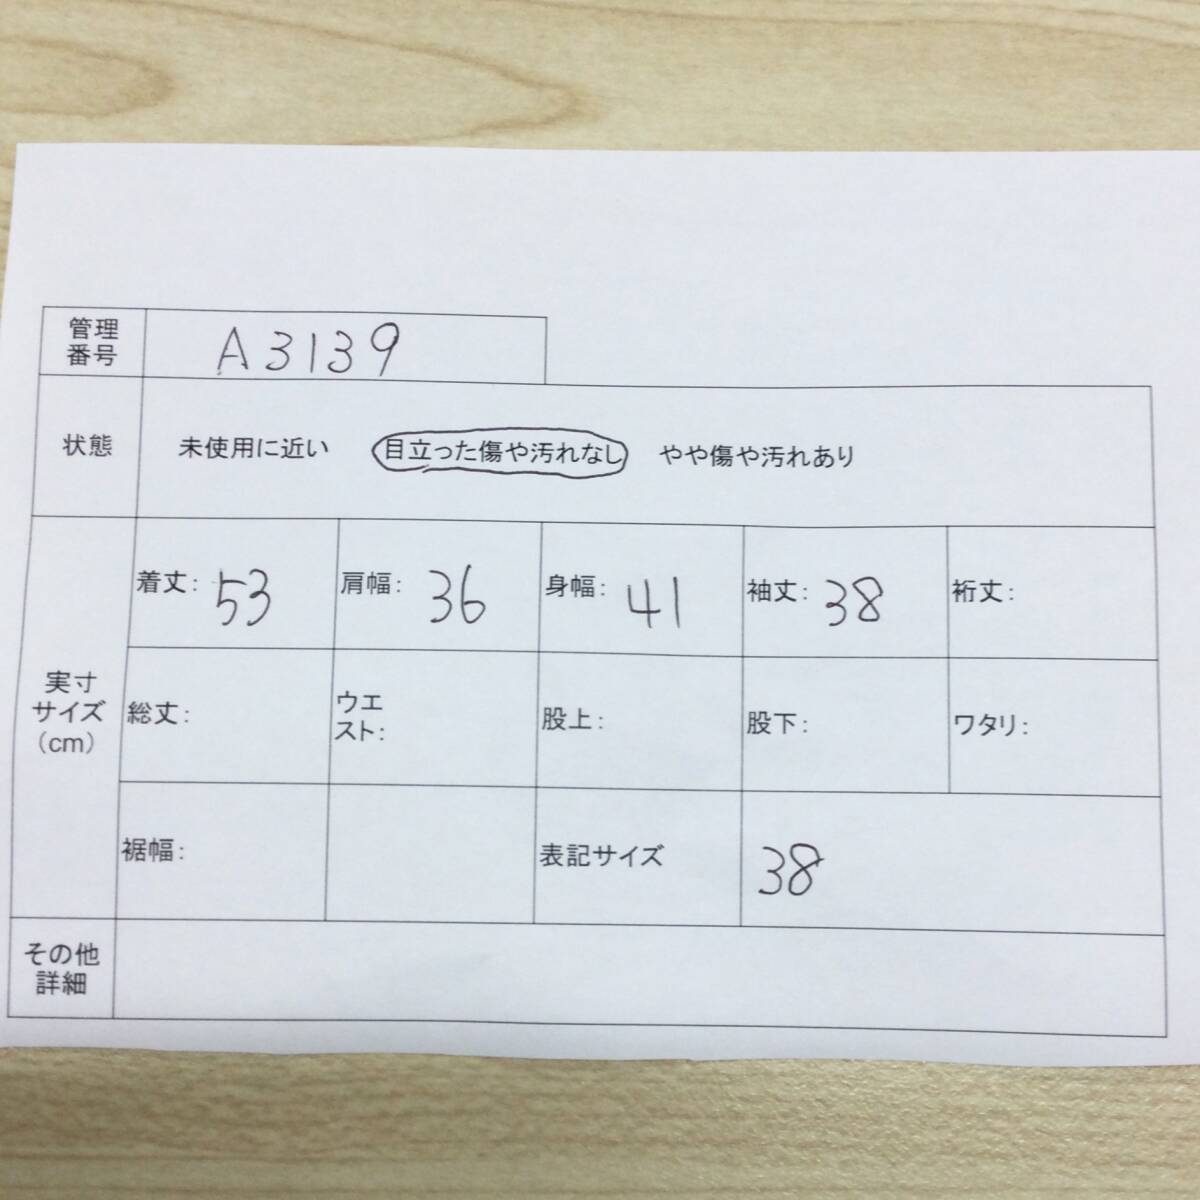 管理
番号
A3139
状態
未使用に近い 目立った傷や汚れなし やや傷や汚れあり
実寸
サイズ
(cm)
着丈: 53
肩幅: 36
身幅: 41
袖丈: 38
裄丈:
総丈:
ウエ
スト:
股上:
股下:
ワタリ:
裾幅:
表記サイズ
38
その他
詳細